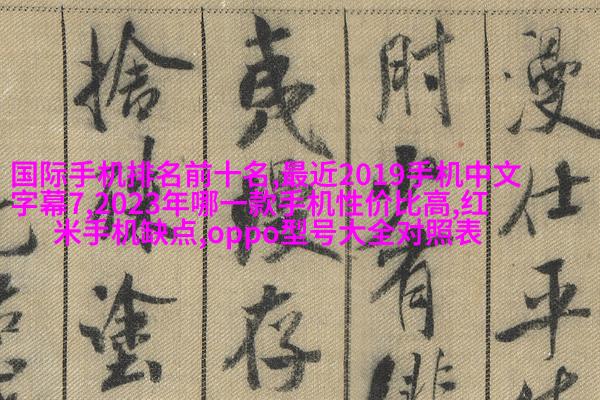 国际手机排名前十名,最近2019手机中文
字幕7,2023年哪一款手机性价比高,红
米手机缺点,oppo型号大全对照表
漫仕平
有
存
捨塗